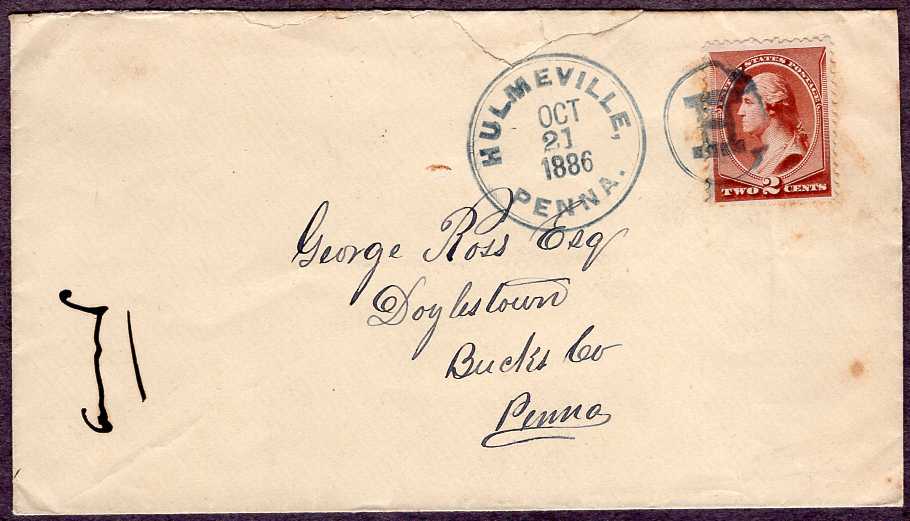 HULMEVILLE,
OCT
21
1886
PENNA.
UNITED STATES POSTAGE
TWO 2 CENTS
George Ross Esq
Doylestown
Bucks Co
Penna